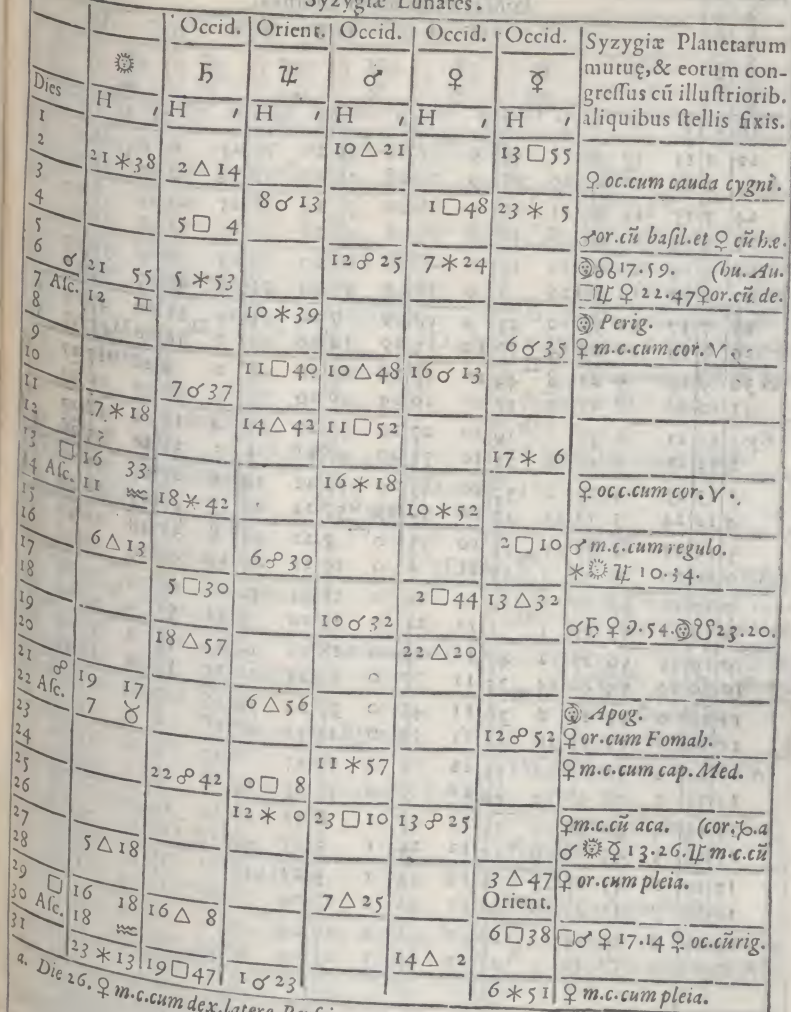 Syzygiæ Lunares.
Occid. Orient. Occid. Occid. Occid. Syzygiæ Planetarum
☉ ♄ ♃ ♂ ♀ ☿ mutuę,& eorum con-
Dies greſſus cũ illuſtriorib.
H ′ H ′ H ′ H ′ H ′ H ′ aliquibus ſtellis fixis.
1
2 10 △ 21 13 □ 55
3 21 ⚹ 38 2 △ 14 ♀ oc.cum cauda cygni.
4 8 ☌ 13 1 □ 48 23 ⚹ 5
5 5 □ 4 ♂or.cũ baſil.et ♀ cũ hæ.
6 ☌ 21 55 12 ☍ 25 7 ⚹ 24 ☽☊17.59. (hu. Au.
7 Aſc. 12 ♊ 5 ⚹ 53 □♃ ♀ 22.47♀or.cũ de.
8 10 ⚹ 39 ☽ Perig.
9 6 ☌ 35 ♀ m.c.cum cor. ♈
10 11 □ 40 10 △ 48 16 ☌ 13
11 7 ☌ 37
12 7 ⚹ 18 14 △ 42 11 □ 52
13 □ 16 33 17 ⚹ 6
14 Aſc. 11 ♒ 16 ⚹ 18 ♀ occ.cum cor. ♈
15 18 ⚹ 42 10 ⚹ 52
16 2 □ 10 ♂ m.c.cum regulo.
17 6 △ 13 6 ☍ 30 ⚹ ☉ ♃ 10.34.
18 5 □ 30 2 □ 44 13 △ 32
19 10 ☌ 32 ☌ ♄ ♀ 9.54.☽☋23.20.
20 18 △ 57 22 △ 20
21 ☍ 19 17
22 Aſc. 7 ♉ 6 △ 56 ☽ Apog.
23 12 ☍ 52 ♀ or.cum Fomah.
24 11 ⚹ 57 ♀ m.c.cum cap. Med.
25 22 ☍ 42 0 □ 8
26 12 ⚹ 0 23 □ 10 13 ☍ 25 ♀m.c.cũ aca. (cor.♑.a
27 ☌ ☉ ☿ 13.26.♃ m.c.cũ
28 5 △ 18 3 △ 47 ♀ or.cum pleia.
29 □ 16 18 7 △ 25 Orient.
30 Aſc. 18 ♒ 16 △ 8 6 □ 38 □♂ ♀ 17.14 ♀ oc.cũrig.
31 23 ⚹ 13 19 □ 47 1 ☌ 23 14 △ 2
6 ⚹ 51 ♀ m.c.cum pleia.
a. Die 26. ♀ m.c.cum dex.latere